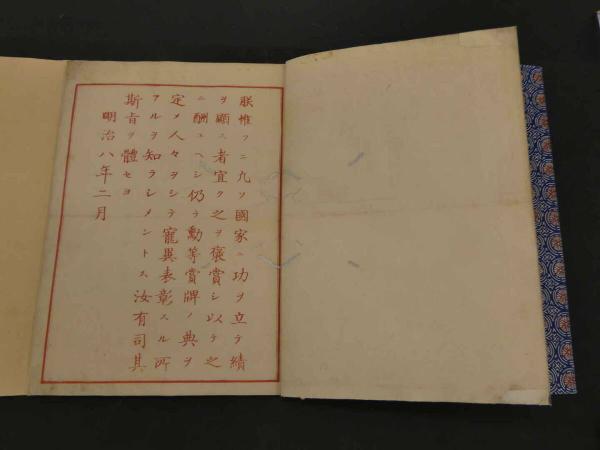 朕惟フニ凡ソ國家ニ功ヲ立テ績
ヲ顯ス者宜ク之ヲ褒賞シ以テ之
ニ酬ユヘシ仍テ勳等賞牌ノ典ヲ
定メ人々ヲシテ寵異表彰スル所
アルヲ知ラシメントス汝有司其
斯旨ヲ體セヨ
明治八年二月